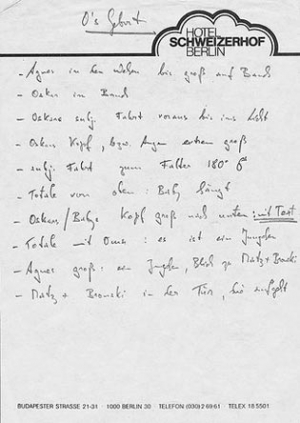 O's Geburt
HOTEL
SCHWEIZERHOF
BERLIN
- Agnes in den Wehen bis groß auf Bauch
- Oskar im Bauch
- Oskars subj. Fahrt voraus bis ins Licht
- Oskars Kopf, bzw. Augen extrem groß
- subj. Fahrt zum Falter 180°
- Totale von oben: Baby hängt
- Oskars/Babys Kopf groß nach unten: mit Text
- Totale mit Oma: es ist ein Jungchen
- Agnes groß: ein Jungchen, Blick zu Matz + Bronski
- Matz + Bronski in der Tür,
BUDAPESTER STRASSE 21-31 · 1000 BERLIN 30 · TELEFON (030) 2 69 61 · TELEX 18 5501